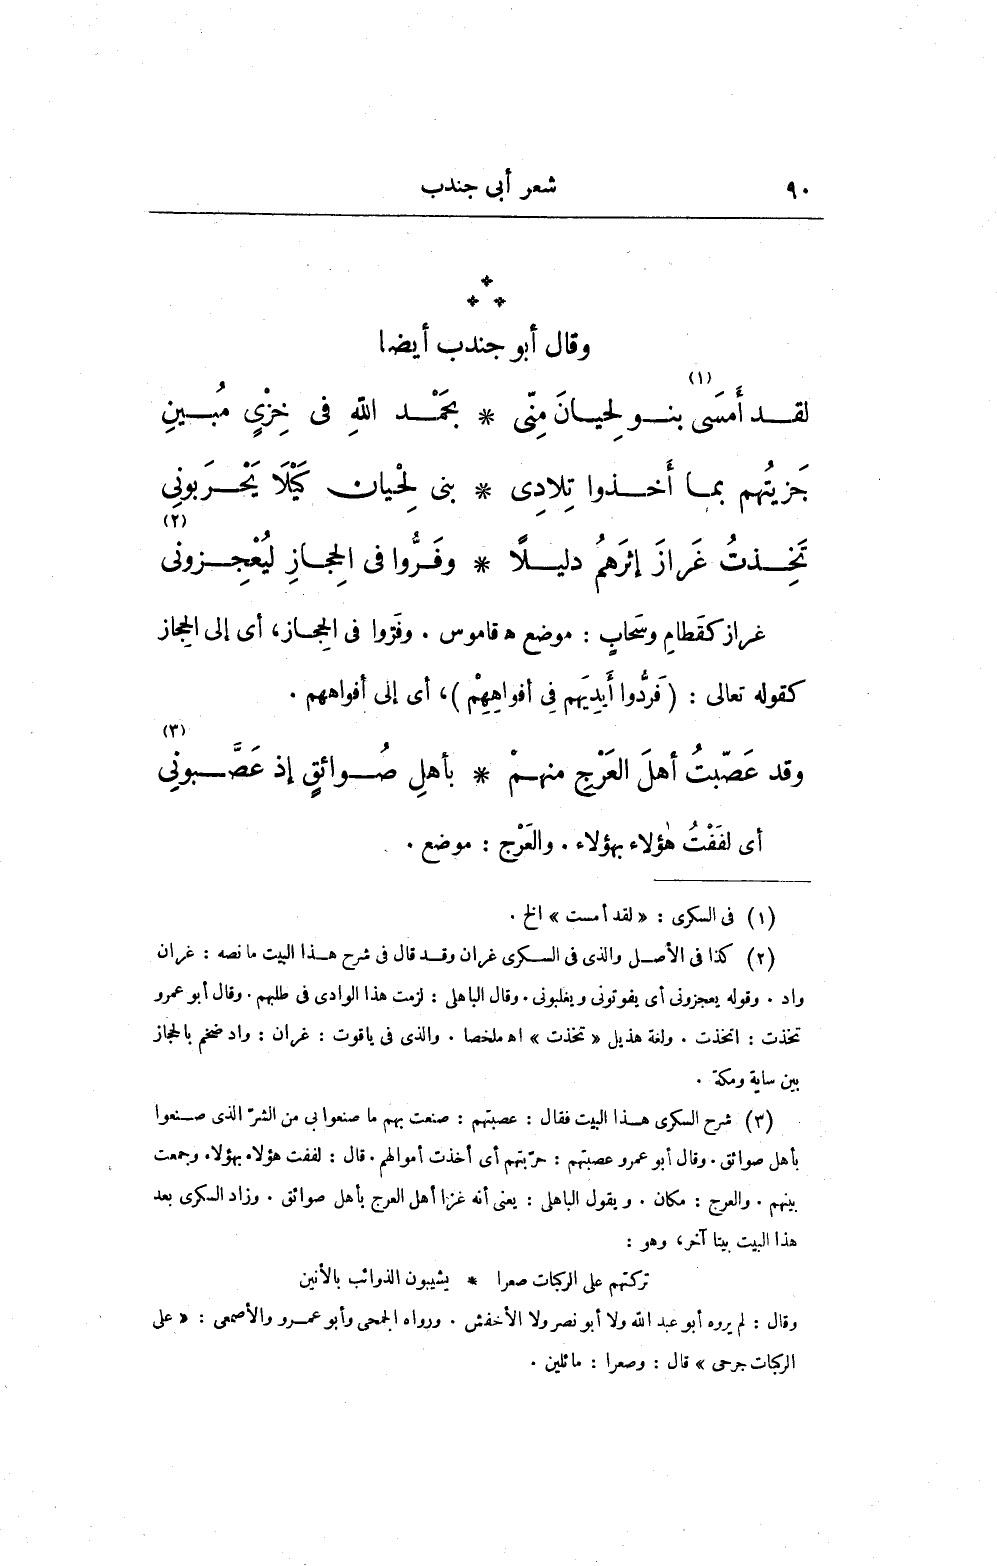 ٩٠
شعر أبى جندب
وقال أبو جندب أيضا
لقد أَمسَى(١) بنو لِحيانَ مِنِّى * بحَمْد اللهِ فى خِزْىٍ مُبينِ
جَزيتُهم بما أَخذوا تِلادِى * بنى لِحْيان كَيْلَا يَحْرَبونِى
تَخِذتُ غَرازَ إثرَهمُ دليلًا * وفَرُّوا فى الحِجازِ ليُعْجِزونى(٢)
غراز كقَطامِ وسَحابٍ : موضع اه قاموس . وفَرّوا فى الحِجاز، أى إلى الحجاز
كقوله تعالى : ( فَردُّوا أَيدِيَهم فِى أفواهِهِمْ )، أى إلى أفواههم .
وقد عَصّبتُ أهلَ العَرْجِ منهمْ * بأهلِ صُوائقٍ إذ عَصَّبونِى(٣)
أى لفَفْتُ هٰؤلاء بهؤلاء . والعَرْج : موضع .
(١) فى السكرى : « لقد أمست » الخ .
(٢) كذا فى الأصل والذى فى السكرى غران وقد قال فى شرح هذا البيت ما نصه : غران
واد . وقوله يعجزونى أى يفوتونى ويغلبونى . وقال الباهلى : لزمت هذا الوادى فى طلبهم . وقال أبو عمرو
تخذت : اتخذت . ولغة هذيل « تخذت » اه ملخصا . والذى فى ياقوت : غران : واد ضخم بالحجاز
بين ساية ومكة .
(٣) شرح السكرى هذا البيت فقال : عصبتهم : صنعت بهم ما صنعوا بى من الشرّ الذى صنعوا
بأهل صوائق . وقال أبو عمرو عصبتهم : حرّبتهم أى أخذت أموالهم . قال : لففت هؤلاء بهؤلاء وجمعت
بينهم . والعرج : مكان . ويقول الباهلى : يعنى أنه غزا أهل العرج بأهل صوائق . وزاد السكرى بعد
هذا البيت بيتا آخر، وهو :
تركتهم على الركبات صعرا * يشيبون الذوائب بالأنين
وقال : لم يروه أبو عبد الله ولا أبو نصر ولا الأخفش . ورواه الجمحى وأبو عمرو والأصمعى : « على
الركبات جرحى » قال : وصعرا : مائلين .